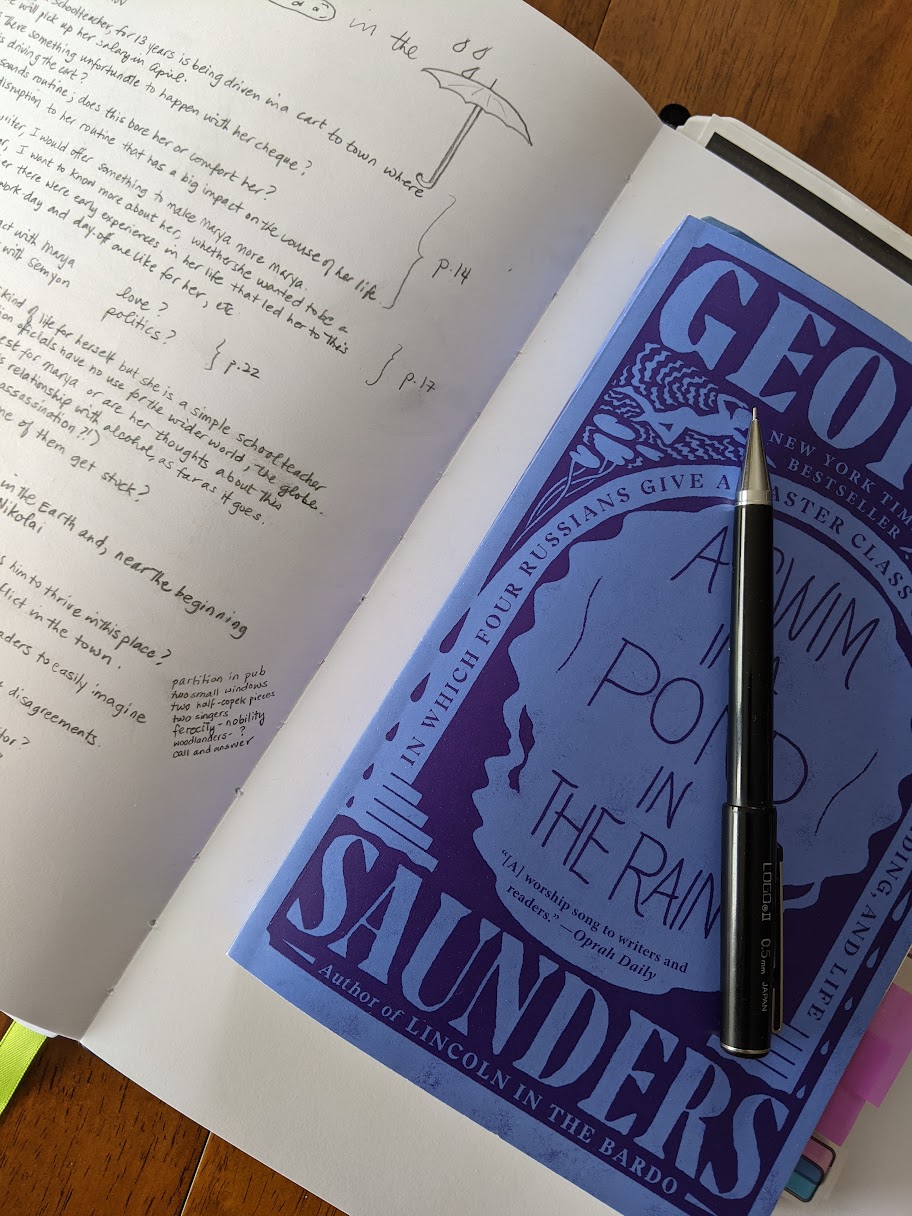 in the
Schoolteacher, for 13 years is being driven in a cart to town where
will pick up her salary in April.
there something unfortunate to happen with her cheque?
is driving the cart?
sounds routine; does this bore her or comfort her?
disruption to her routine that has a big impact on the course of her life
writer, I would offer something to make Marya more Marya.
I want to know more about her, whether she wanted to be a
there were early experiences in her life that led her to this
work day and day off are like for her, etc
p.14
p.17
with Marya
with Semyon
love?
politics?
p.22
kind of life for herself but she is a simple schoolteacher
officials have no use for the wider world, the globe.
for Marya or are her thoughts about this
relationship with alcohol, as far as it goes.
assassination?!)
of them get stuck?
in the Earth and, near the beginning
Nikolai
him to thrive in this place?
in the town.
to easily imagine
disagreements.
partition in pub
two small windows
two half-copek pieces
two singers
ferocity - nobility
woodlanders - ?
call and answer
GEO
NEW YORK TIM
BESTSELLER
IN WHICH FOUR RUSSIANS GIVE A MASTER CLASS
DING, AND LIFE
A SWIM
IN A
POND
IN
THE RAIN
"[A] worship song to writers and
readers." —Oprah Daily
SAUNDERS
Author of LINCOLN IN THE BARDO
LOGO II 0.5mm JAPAN